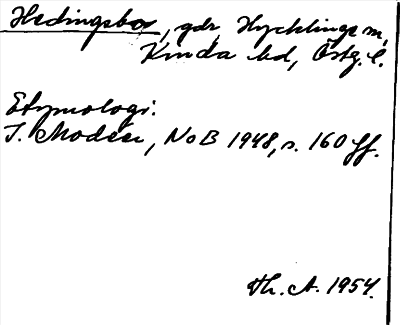 Hedingsbor, gdr, Hycklinge sn,
Kinda hd, Östg. l.
Etymologi.
I. Modéer, NoB 1948, s. 160 ff.
Th. A. 1954.